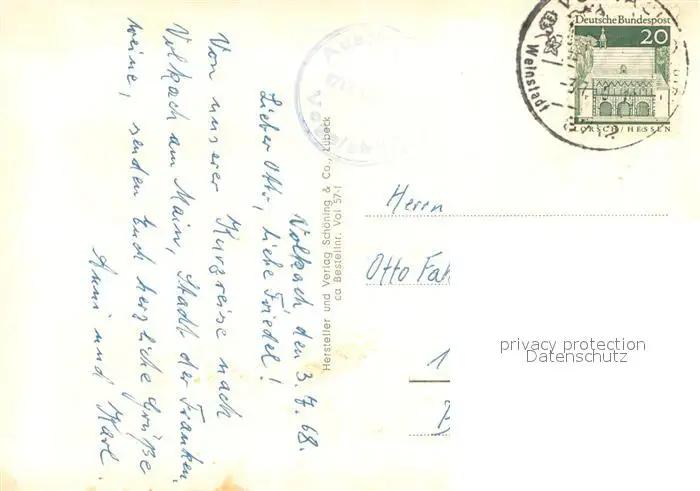 Volkach den 3.7.68.
Lieber Otto, liebe Friedel!
Von unserer Kurzreise nach
Volkach am Main, Stadt der Franken,
weine, senden Euch herzliche Grüße
Anni und Karl.
Hersteller und Verlag Schöning & Co., Lübeck
ca Bestellnr. Vol 57-1
Deutsche Bundespost
20
LORSCH/HESSEN
Weinstadt
Herrn
Otto Fah
1
privacy protection
Datenschutz